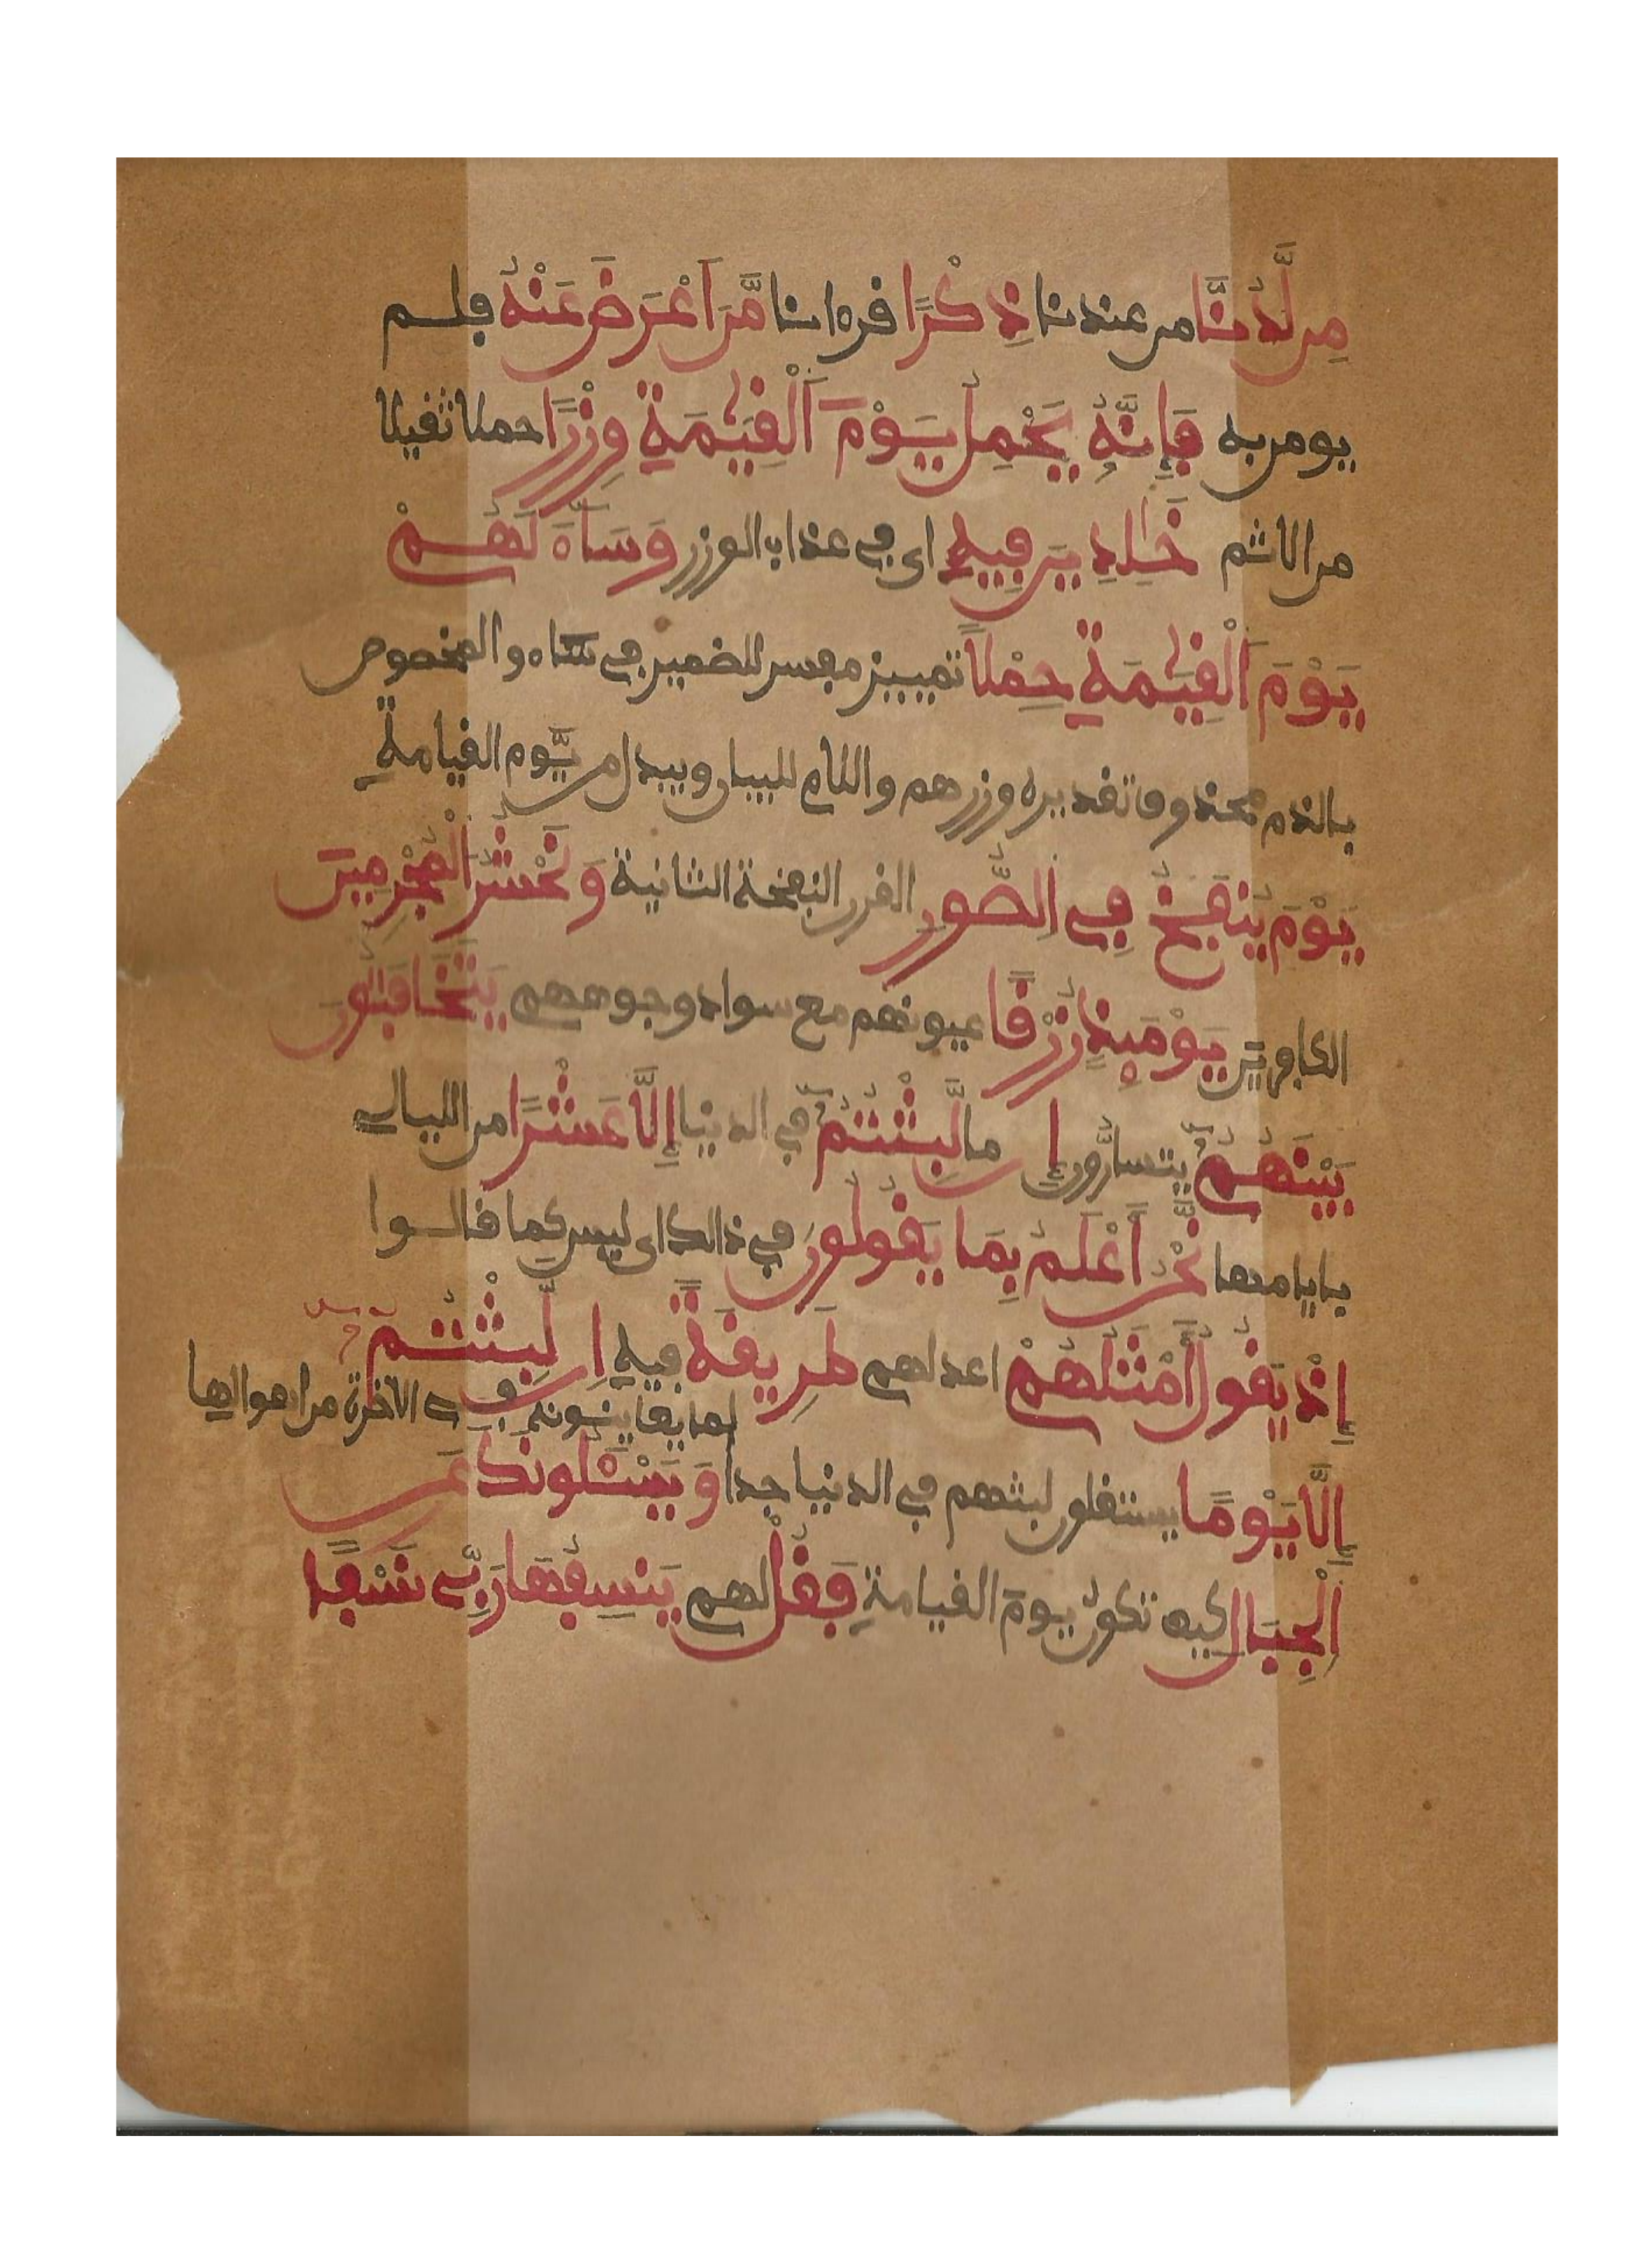 مِن لَّدُنَّا من عندنا ذِكْرًا قرءانا مَّنَ اَعْرَضَ عَنْهُ فلم
يومن به فَإِنَّهُۥ يَحْمِلُ يَوْمَ اَلْقِيَٰمَةِ وِزْرًا حملا ثقيلا
من الاثم خَٰلِدِينَ فِيهِ اى في عذاب الوزر وَسَآءَ لَهُمْ
يَوْمَ اَلْقِيَٰمَةِ حِمْلًا تمييز مفسر للضمير في ساء والمخصوص
بالذم محذوف تقديره وزرهم واللام للبيان ويبدل من يَّوم القيامةِ
يَوْمَ يُنفَخُ فِي اِلصُّورِ القرن النفخة الثانية وَنَحْشُرُ اُلْمُجْرِمِينَ
الكافرين يَوْمَئِذٍ زُرْقًا عيونهم مع سواد وجوههم يَتَخَٰفَتُونَ
بَيْنَهُمُۥٓ يتسارُّون إن ما لَّبِثْتُمُۥٓ في الدنيا إِلَّا عَشْرًا من الليالي
بايامها نَّحْنُ أَعْلَمُ بِمَا يَقُولُونَ في ذالك اى ليس كما قالوا
إِذْ يَقُولُ أَمْثَلُهُمْ اعدلهم طَرِيقَةً فيه إِن لَّبِثْتُمُۥٓ
لما يعاينونه في الآخرة من اهوالها
إِلَّا يَوْمًا يستقلون لبثهم في الدنيا جدا وَيَسْـَٔلُونَكَ عَنِ
اِلْجِبَالِ كيف تكون يومَ القيامةِ فَقُلْ لهم يَنسِفُهَا رَبِّي نَسْفًا